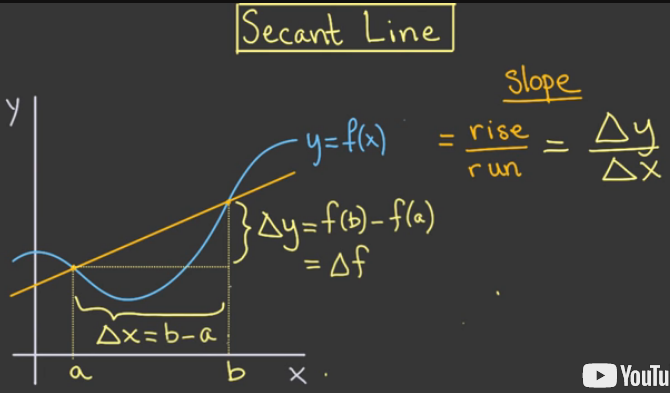 Secant Line
Slope
= rise/run = Δy/Δx
y
y=f(x)
Δy=f(b)-f(a)
=Δf
Δx=b-a
a
b
x